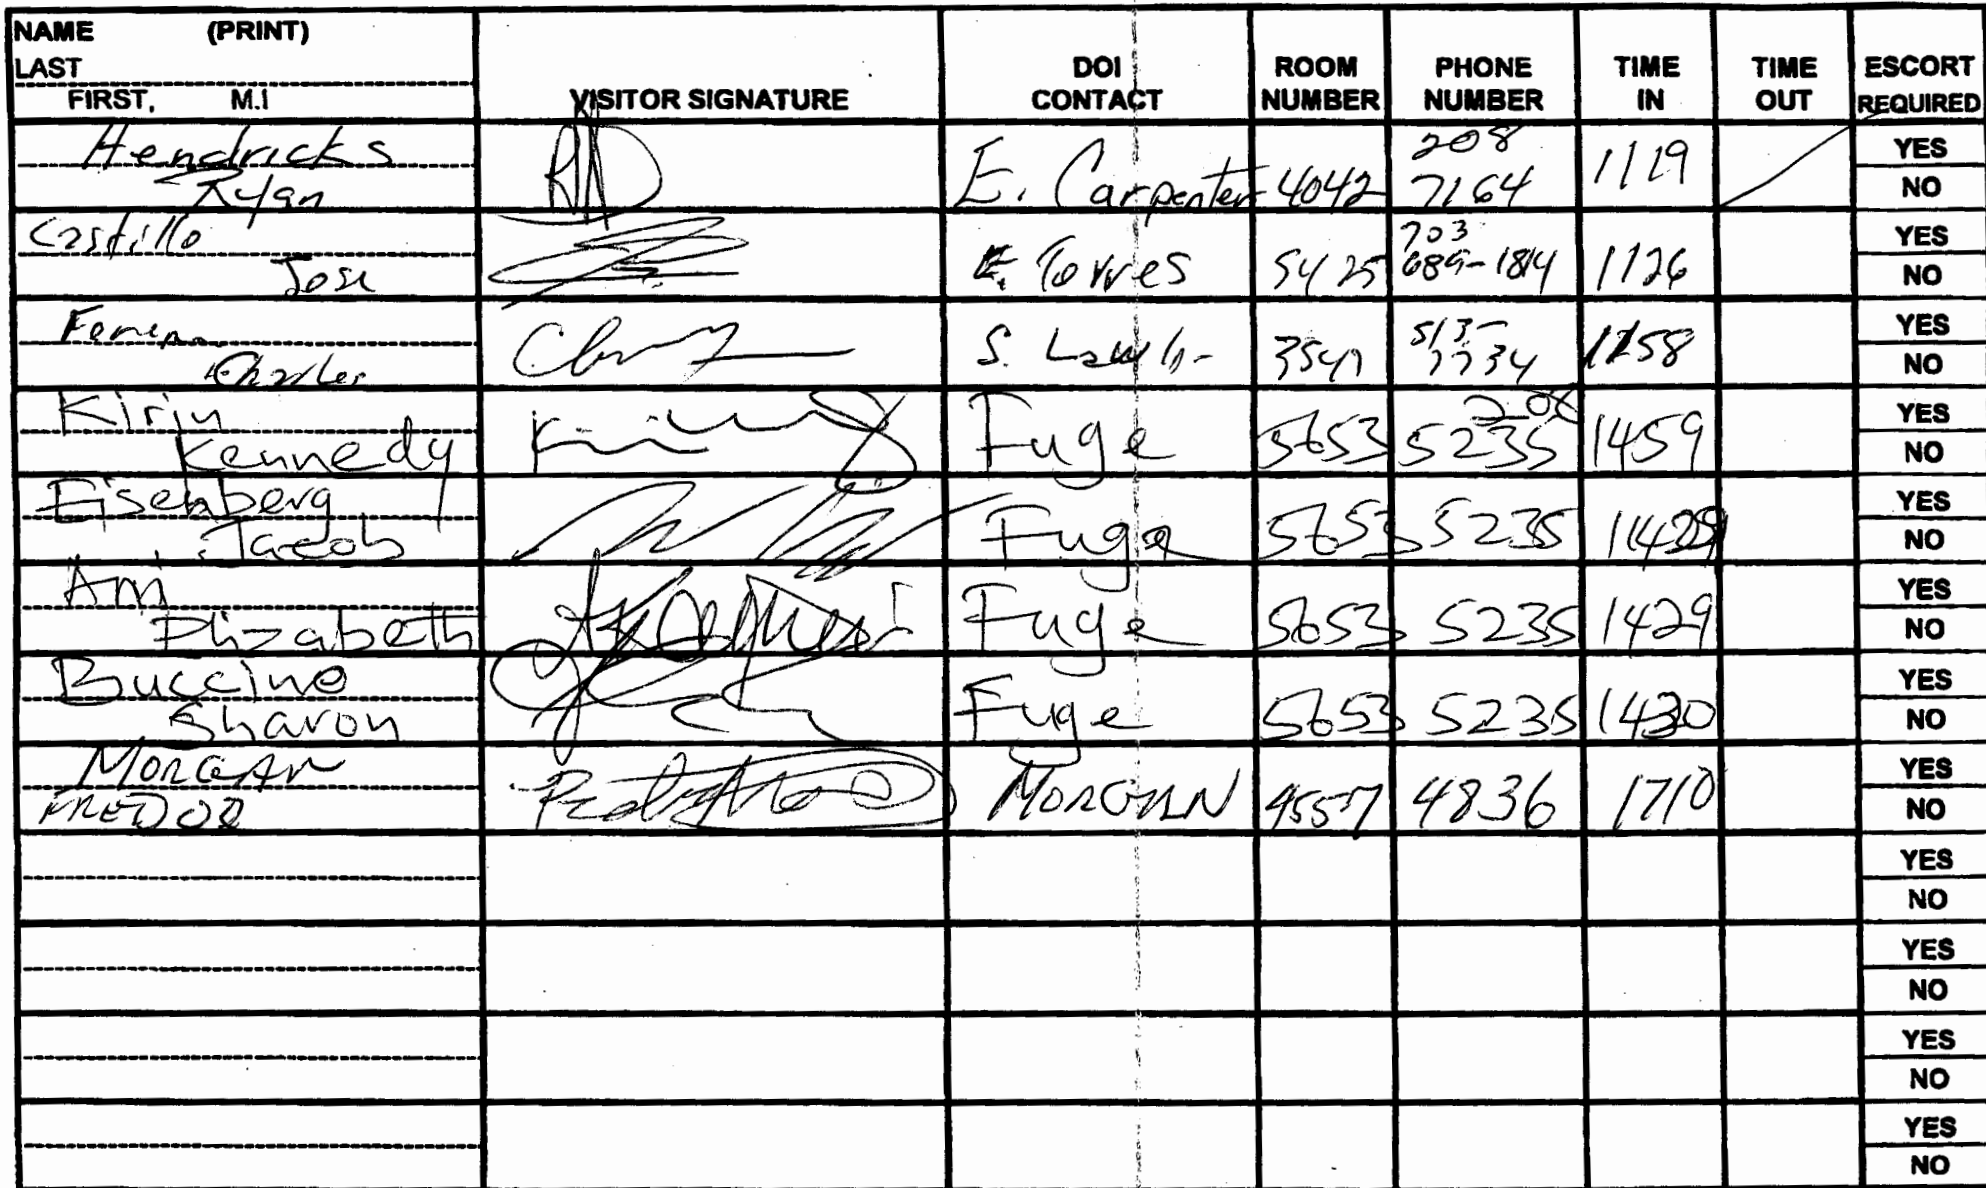 NAME (PRINT)
LAST
FIRST, M.I
VISITOR SIGNATURE
DOI CONTACT
ROOM NUMBER
PHONE NUMBER
TIME IN
TIME OUT
ESCORT REQUIRED
Hendricks
Ryan
E. Carpenter 4042 208 7164 1119
YES
NO
Castillo
Jose
E. Torres 5425 703 689-1814 1126
YES
NO
Charles
S. 513- 1158
YES
NO
Kirin
Kennedy
Fuge 5653 208 5235 1459
YES
NO
Eisenberg
Jacob
Fuge 5653 5235
YES
NO
Ami
Elizabeth
Fuge 5653 5235 1429
YES
NO
Buccino
Sharon
Fuge 5653 5235 1430
YES
NO
MORGAN
MORGAN 4557 4836 1710
YES
NO
YES
NO
YES
NO
YES
NO
YES
NO